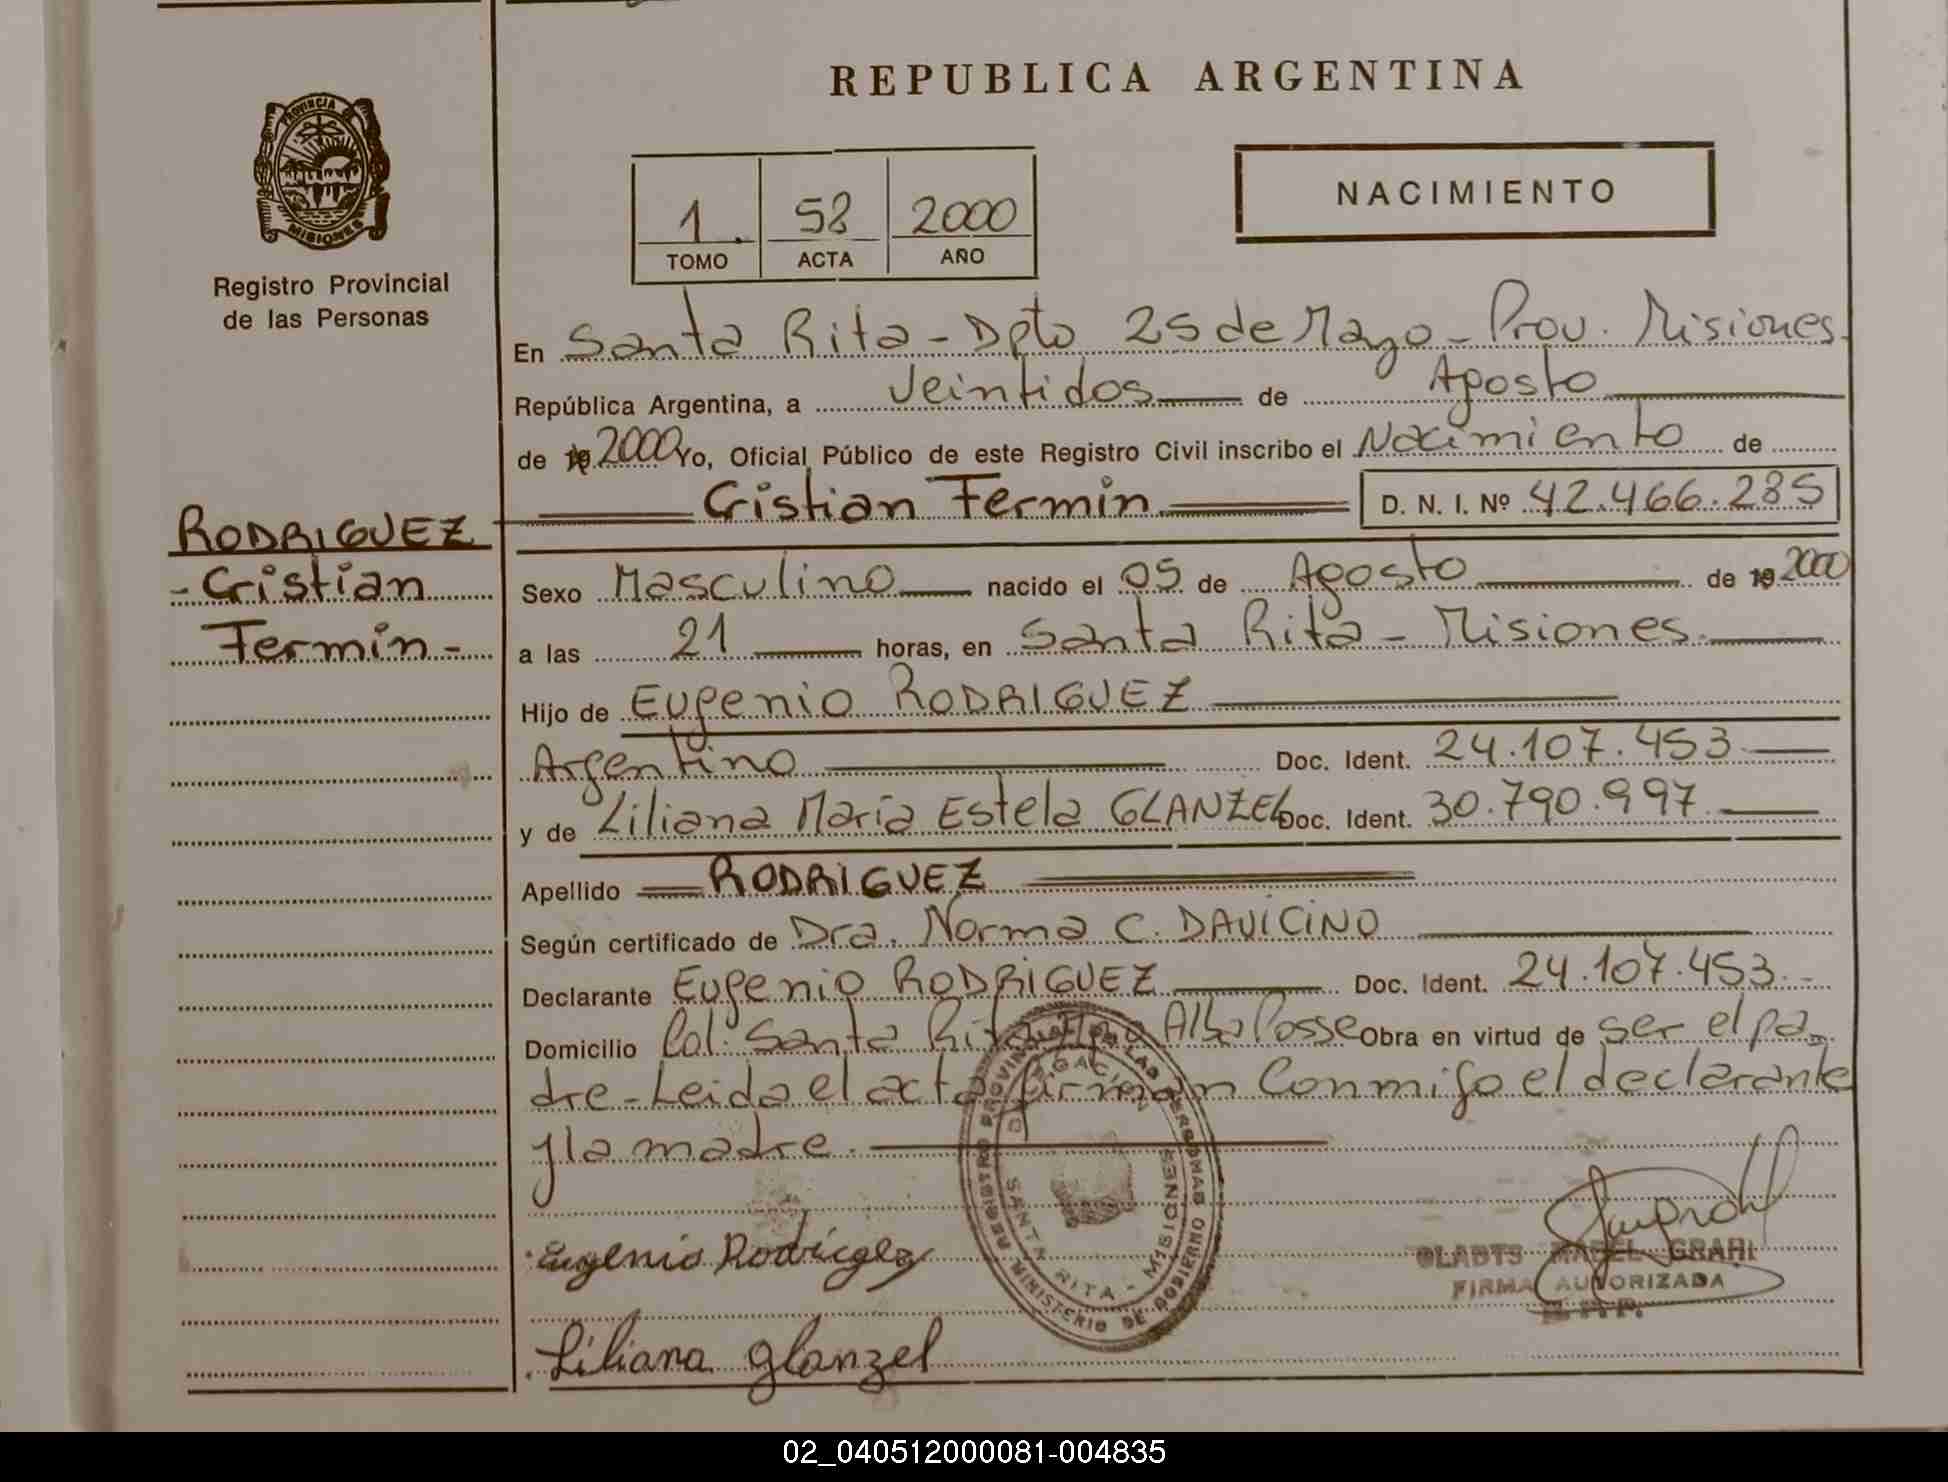 PROVINCIA DE
MISIONES
Registro Provincial
de las Personas
REPUBLICA ARGENTINA
1. 58 2000
TOMO ACTA AÑO
NACIMIENTO
En Santa Rita - Dpto 25 de Mayo - Prov. Misiones.
República Argentina, a Veintidos de Agosto
de 19 2000 Yo, Oficial Público de este Registro Civil inscribo el Nacimiento de
Cristian Fermin D. N. I. Nº 42.466.285
RODRIGUEZ
- Cristian
Fermin -
Sexo Masculino nacido el 05 de Agosto de 19 2000
a las 21 horas, en Santa Rita - Misiones.
Hijo de Eugenio RODRIGUEZ
Argentino Doc. Ident. 24.107.453.
y de Liliana Maria Estela GLANZEL Doc. Ident. 30.790.997.
Apellido RODRIGUEZ
Según certificado de Dra. Norma C. DAVICINO
Declarante Eugenio RODRIGUEZ Doc. Ident. 24.107.453.-
Domicilio Col. Santa Rita Alba Posse Obra en virtud de ser el pa
dre - Leida el acta firman Conmigo el declarante
y la madre.
REGISTRO PROVINCIAL DE LAS PERSONAS
MINISTERIO DE GOBIERNO
DELEGACION
SANTA RITA - MISIONES
Eugenio Rodriguez
GLADYS MABEL GRAHL
FIRMA AUTORIZADA
R.P.P.
Liliana glanzel
02_040512000081-004835